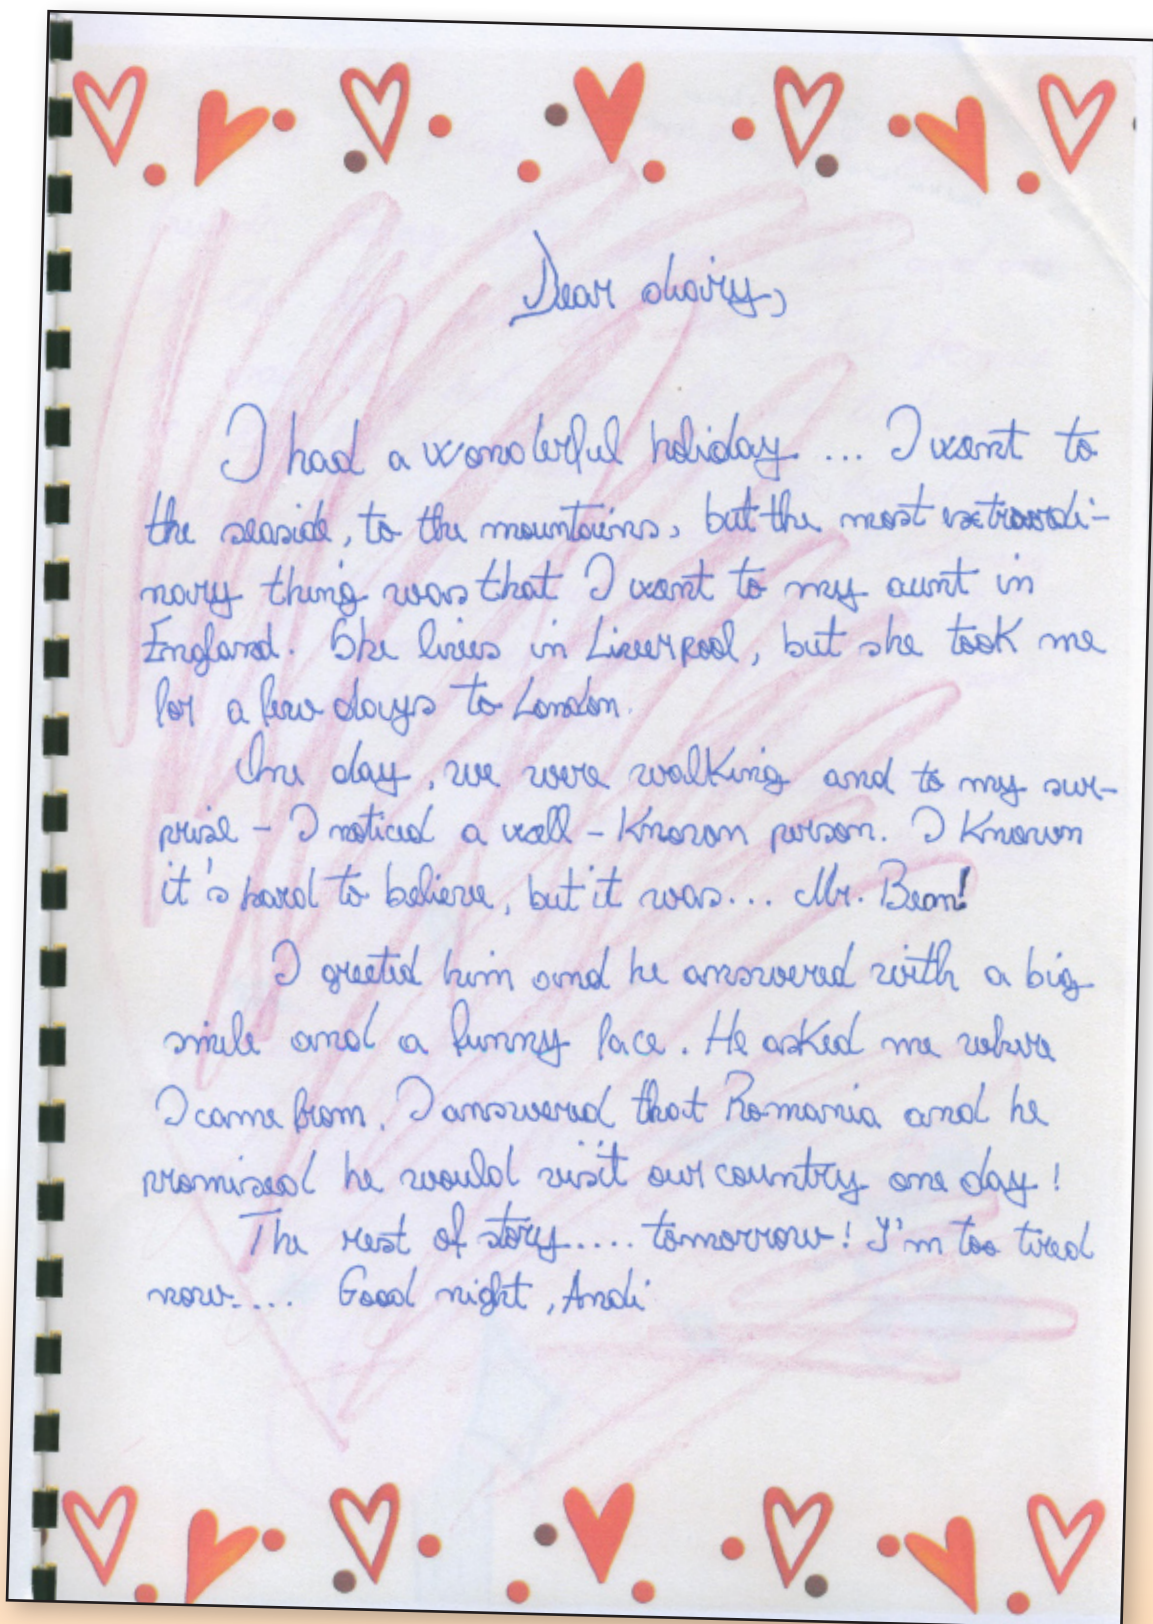 Dear diary,
I had a wonderful holiday.... I went to
the seaside, to the mountains, but the most extraordi-
nary thing was that I went to my aunt in
England. She lives in Liverpool, but she took me
for a few days to London.
One day, we were walking and to my sur-
prise - I noticed a well-known person. I known
it's hard to believe, but it was... Mr. Bean!
I greeted him and he answered with a big
smile and a funny face. He asked me where
I came from. I answered that Romania and he
promised he would visit our country one day!
The rest of story..... tomorrow! I'm too tired
now.... Good night, Andi